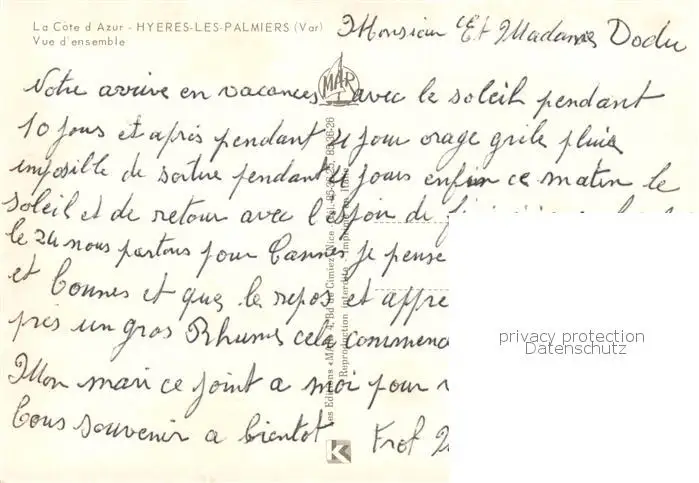 La Côte d'Azur - HYERES-LES-PALMIERS (Var)
Vue d'ensemble
Monsieur Et Madame Dodu
MAR
Notre arrive en vacances avec le soleil pendant
10 jours et après pendant 4 jour orage grile pluie
imposible de sortire pendant 4 jours enfin ce matin le
soleil et de retour avec l'espoir de
le 24 nous partons pour Cannes je pense
et Bonnes et que le repos et appre
pris un gros Rhume cela commenc
Mon mari ce joint a moi pour
Bous souvenir a bientot
Les Editions «MAR» 4, Bd de Cimiez, Nice - Tél. 85-34-25, 85-36-26
Reproduction interdite - Imprimé en Italie
privacy protection
Datenschutz
K